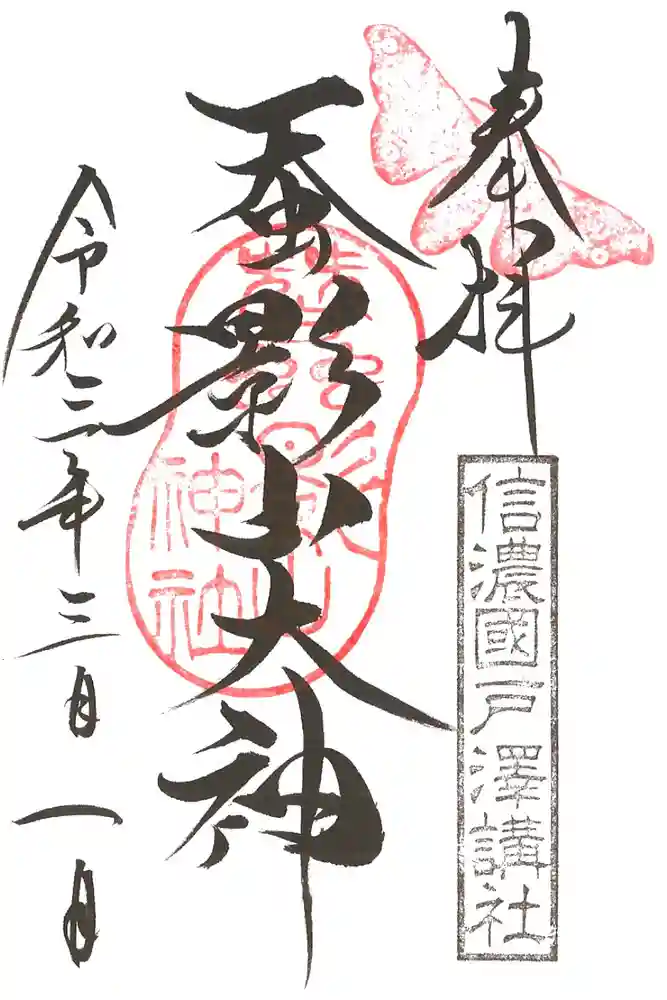 奉拝
信濃國戸澤講社
蚕影山大神
神社
令和三年三月一日